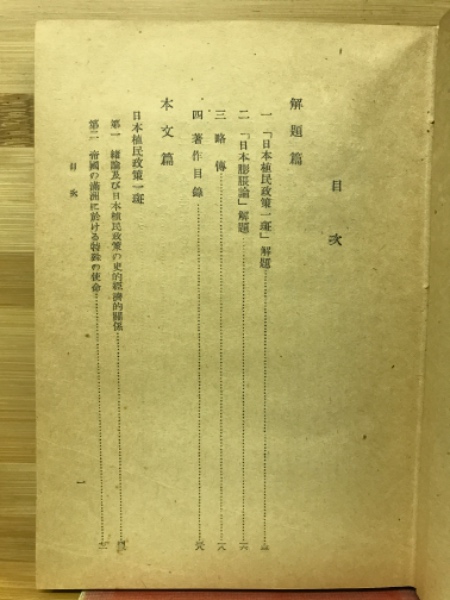 目次
解題篇
一 「日本植民政策一斑」解題
二 「日本膨脹論」解題
三 略傳
四 著作目錄
本文篇
日本植民政策一斑
第一 緒論及び日本植民政策の史的經濟的關係
第二 帝國の滿洲に於ける特殊の使命
目次
一